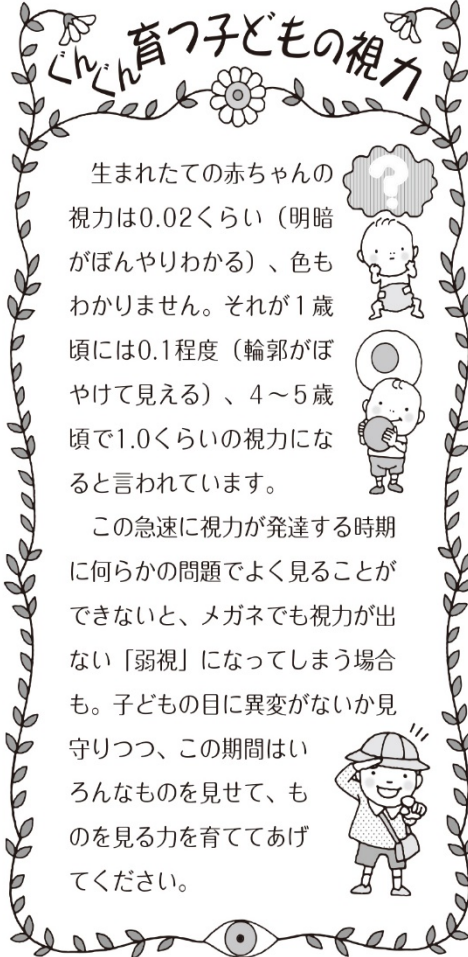 ぐんぐん育つ子どもの視力
?
生まれたての赤ちゃんの
視力は0.02くらい（明暗
がぼんやりわかる）、色も
わかりません。それが1歳
頃には0.1程度（輪郭がぼ
やけて見える）、4～5歳
頃で1.0くらいの視力にな
ると言われています。
この急速に視力が発達する時期
に何らかの問題でよく見ることが
できないと、メガネでも視力が出
ない「弱視」になってしまう場合
も。子どもの目に異変がないか見
守りつつ、この期間はい
ろんなものを見せて、も
のを見る力を育ててあげ
てください。